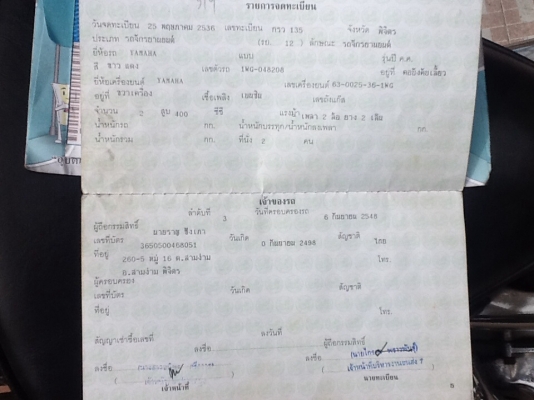 รายการจดทะเบียน
วันจดทะเบียน 25 พฤษภาคม 2536 เลขทะเบียน กรว 135 จังหวัด พิจิตร
ประเภท รถจักรยานยนต์ (รย. 12 ) ลักษณะ รถจักรยานยนต์
ยี่ห้อรถ YAMAHA แบบ รุ่นปี ค.ศ.
สี ขาว แดง เลขตัวรถ 1WG-048208 อยู่ที่ คอถังคัดเลี้ยว
ยี่ห้อเครื่องยนต์ YAMAHA เลขเครื่องยนต์ 63-0025-36-1WG
อยู่ที่ ขวาเครื่อง เชื้อเพลิง เบนซิน เลขถังแก๊ส
จำนวน 2 สูบ 400 ซีซี แรงม้า เพลา 2 ล้อ ยาง 2 เส้น
น้ำหนักรถ กก. น้ำหนักบรรทุก/น้ำหนักลงเพลา กก.
น้ำหนักรวม กก. ที่นั่ง 2 คน
เจ้าของรถ
ลำดับที่ 3 วันที่ครอบครองรถ 6 กันยายน 2548
ผู้ถือกรรมสิทธิ์
เลขที่บัตร 3650500468051 วันเกิด 0 กันยายน 2498 สัญชาติ ไทย
ที่อยู่ 260-5 หมู่ 16 ต.สามง่าม โทร.
อ.สามง่าม พิจิตร
ผู้ครอบครอง
เลขที่บัตร วันเกิด สัญชาติ
ที่อยู่ โทร.
สัญญาเช่าซื้อเลขที่ ลงวันที่
ลงชื่อ ผู้ถือกรรมสิทธิ์
ลงชื่อ ลงชื่อ
เจ้าหน้าที่ นายทะเบียน